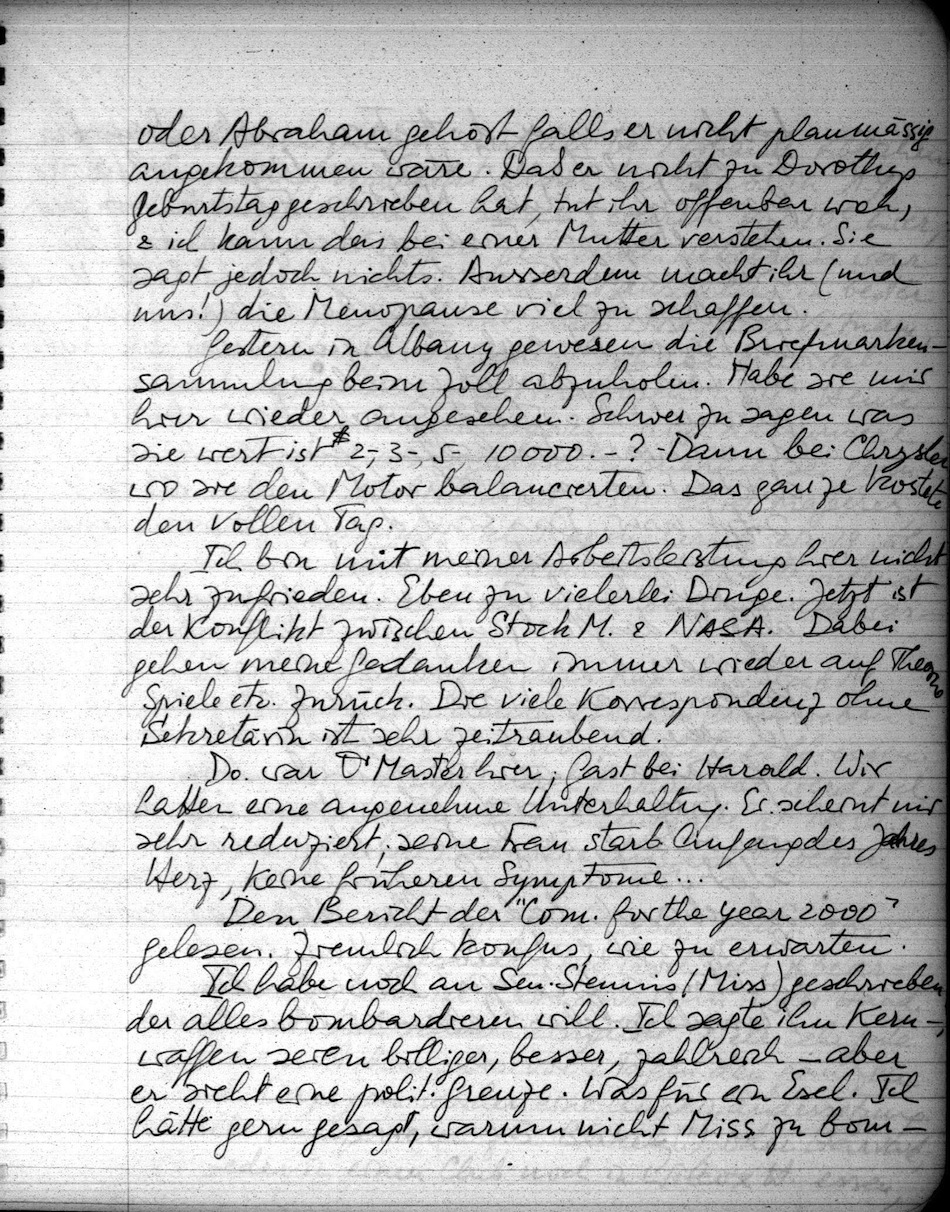 oder Abraham gehört falls er nicht planmässig
angekommen wäre. Daß er nicht zu Dorothys
Geburtstag geschrieben hat, tut ihr offenbar weh,
& ich kann das bei einer Mutter verstehen. Sie
sagt jedoch nichts. Ausserdem macht ihr (und
uns!) die Menopause viel zu schaffen.
Gestern in Albany gewesen die Briefmarken-
sammlung beim Zoll abzuholen. Habe sie mir
hier wieder angesehen. Schwer zu sagen was
sie wert ist $ 2-, 3-, 5- 10000.-? - Dann bei Chrysler
wo sie den Motor balancierten. Das ganze kostete
den vollen Tag.
Ich bin mit meiner Arbeitsleistung hier nicht
sehr zufrieden. Eben zu vielerlei Dinge. Jetzt ist
der Konflikt zwischen Stock M. & NASA. Dabei
gehen meine Gedanken immer wieder auf Theorie
Spiele etc. zurück. Die viele Korrespondenz ohne
Sekretärin ist sehr zeitraubend.
Do. war O'Master hier, Gast bei Harald. Wir
hatten eine angenehme Unterhaltg. Er scheint mir
sehr reduziert; seine Frau starb Anfang des Jahres
Herz, keine früheren Symptome...
Den Bericht der "Com. for the year 2000"
gelesen. Ziemlich konfus, wie zu erwarten.
Ich habe noch an Sen. Stennis (Miss) geschrieben
der alles bombardieren will. Ich sagte ihm Kern-
waffen seien billiger, besser, zahlreich – aber
er sieht eine polit. Grenze. Was für ein Esel. Ich
hätte gern gesagt, warum nicht Miss zu bom-